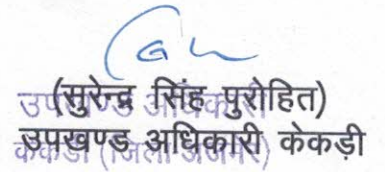 (सुरेन्द्र सिंह पुरोहित)
उपखण्ड अधिकारी
उपखण्ड अधिकारी केकड़ी
केकडी (जिला अजमेर)